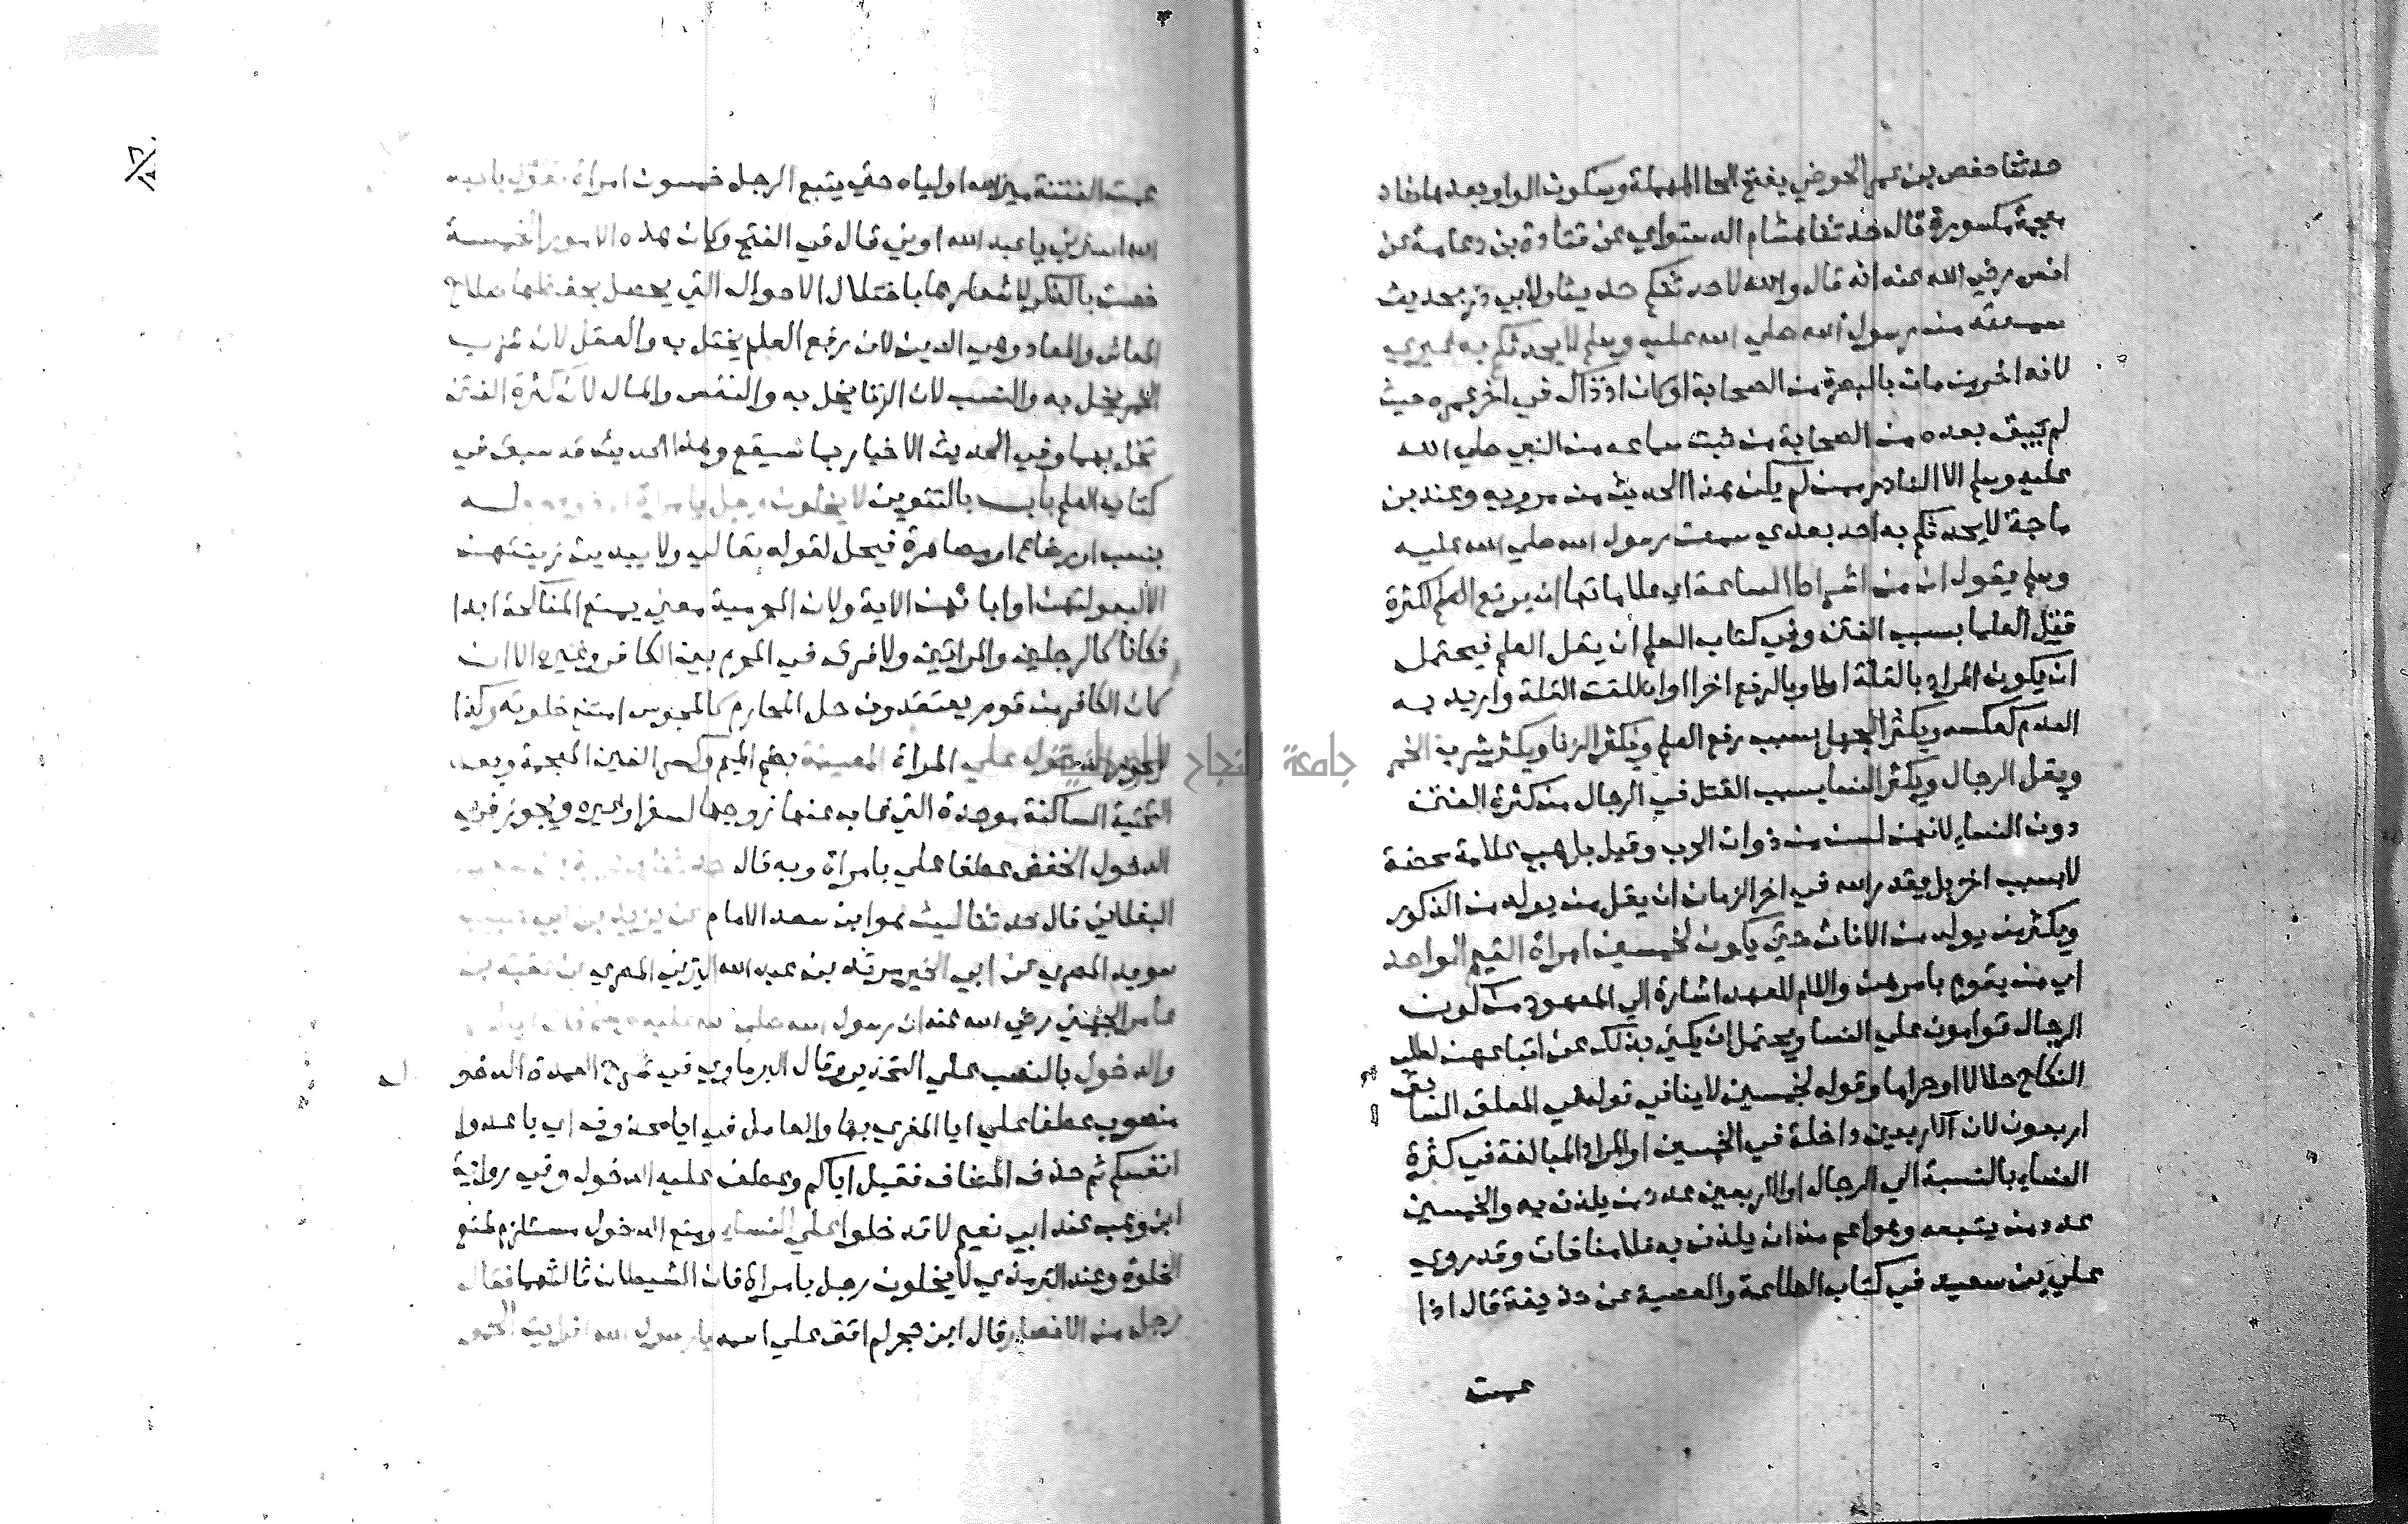 حدثنا حفص بن عمر الحوضي بفتح الحا المهملة وسكون الواو بعدها ضاد
معجمة مكسورة قال حدثنا هشام الدستواي عن قتادة بن دعامة عن
انس رضي الله عنه انه قال والله لاحدثنكم حديثا ولابي ذر بحديث
سمعته من رسول الله صلي الله عليه وسلم لا يحدثكم به غيري
لانه اخر من مات بالبصرة من الصحابة او كان اذ ذاك في اخر عمره حيث
لم يبق بعده من الصحابة من ثبت سماعه من النبي صلي الله
عليه وسلم الا النادر ممن لم يكن هذا الحديث من مرويه وعند بن
ماجة لا يحدثكم به احد بعدي سمعت رسول الله صلي الله عليه
وسلم يقول ان من اشراط الساعة اي علاماتها ان يرفع العلم لكثرة
قتل العلما بسبب الفتن وفي كتاب العلم ان يقل العلم فيحتمل
ان يكون المراد بالقلة اولا وبالرفع اخرا او اطلقت القلة واريد به
العدم كعكسه ويكثر الجهل بسبب رفع العلم ويكثر الزنا ويكثر شرب الخمر
ويقل الرجال ويكثر النسا بسبب القتل في الرجال من كثرة الفتن
دون النساء لانهن لسن من ذوات الحرب وقيل بل هي علامة محضة
لا بسبب اخر بل يقدر الله في اخر الزمان ان يقل من يولد من الذكور
ويكثر من يولد من الاناث حتي يكون لخمسين امراة القيم الواحد
اي من يقوم بامرهن واللام للعهد اشارة الي المعهود من كون
الرجال قوامون علي النسا ويحتمل ان يكني بذلك عن اتباعهن لطلب
النكاح حلالا او حراما وقوله لخمسين لا ينافي قوله في المعلق السابق
اربعون لان الاربعين داخلة في الخمسين او المراد المبالغة في كثرة
النساء بالنسبة الي الرجال او الاربعين عدد من يلذن به والخمسين
عدد من يتبعه وهو اعم من ان يلذن به فلا منافات وقد روي
علي بن سعيد في كتاب الطاعة والمعصية عن حذيفة قال اذا
عمت
عمت الفتنة ميز الله اولياه حتي يتبع الرجل خمسون امراة تقول يا عبد
الله استرني يا عبد الله اوني قال في الفتح وكان هذه الامور الخمسة
خصت بالذكر لاشعارها باختلال الاحوال التي يحصل بحفظها صلاح
المعاش والمعاد وهي الدين لان رفع العلم يخل به والعقل لان شرب
الخمر يخل به والنسب لان الزنا يخل به والنفس والمال لان كثرة الفتن
تخل بهما وفي الحديث الاخبار بما سيقع وهذا الحديث قد سبق في
كتاب العلم باب بالتنوين لا يخلون رجل بامراة
بنسب او رضاع او مصاهرة فيحل لقوله تعالي ولا يبدين زينتهن
الا لبعولتهن او ابائهن الاية ولان المحرمية معني يمنع المناكحة ابدا
فكانا كالرجلين والمراتين ولا فرق في المحرم بين الكافر وغيره الا ان
كان الكافر من قوم يعتقدون حل المحارم كالمجوس امتنع خلوته وكذا
الدخول علي المراة المغيبة بضم الميم وكسر الغين المعجمة وبعد
التحتية الساكنة موحدة التي غاب عنها زوجها لسفر او غيره ويجوز في
الدخول الخفض عطفا علي بامراة وبه قال
البغلاني قال حدثنا ليث هو ابن سعد الامام عن يزيد بن ابي حبيب
سويد المصري عن ابي الخير مرثد بن عبد الله اليزني المصري عن عقبة بن
عامر الجهني رضي الله عنه ان رسول الله صلي الله عليه وسلم قال اياكم
والدخول بالنصب علي التحذير وقال البرماوي في شرح العمدة الدخول
منصوب عطفا علي ايا المغري بها والعامل في ايا محذوف اي باعدوا
انفسكم ثم حذف المضاف فقيل اياكم وعطف عليه الدخول وفي رواية
ابن وهب عند ابي نعيم لا تدخلوا علي النساء ومنع الدخول مستلزم لمنع
الخلوة وعند الترمذي لا يخلون رجل بامراة فان الشيطان ثالثهما فقال
رجل من الانصار قال ابن حجر لم اقف علي اسمه يا رسول الله افرايت الحمو
جامعة النجاح الوطنية